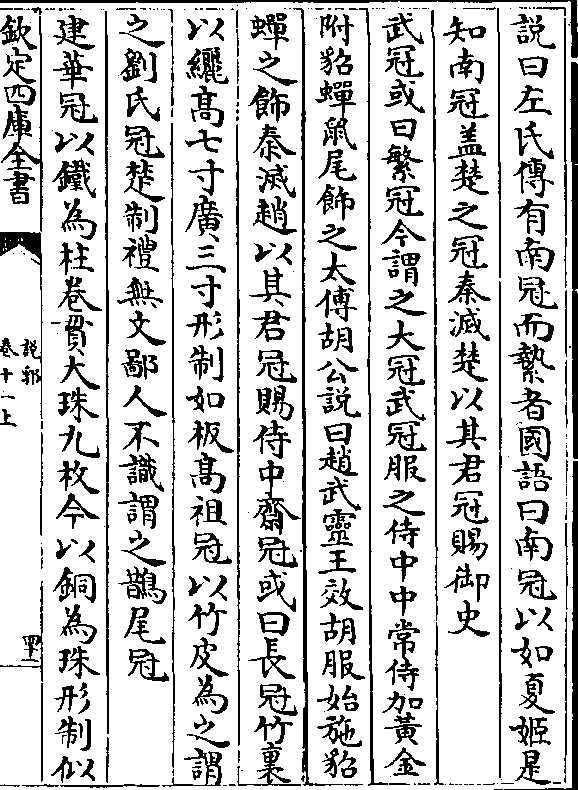 説曰左氏傳有南冠而縶者國語曰南冠以如夏姬是
知南冠蓋楚之冠秦滅楚以其君冠賜御史
武冠或曰繁冠今謂之大冠武冠服之侍中中常侍加黃金
附貂蟬鼠尾飾之太傅胡公説曰趙武靈王效胡服始施貂
蟬之飾秦滅趙以其君冠賜侍中齋冠或曰長冠竹裏
以纚高七寸廣三寸形制如板高祖冠以竹皮為之謂
之劉氏冠楚制禮無文鄙人不識謂之鵲尾冠
建華冠以鐵為柱卷貫大珠九枚今以銅為珠形制似
欽定四庫全書
説郛
卷十一上